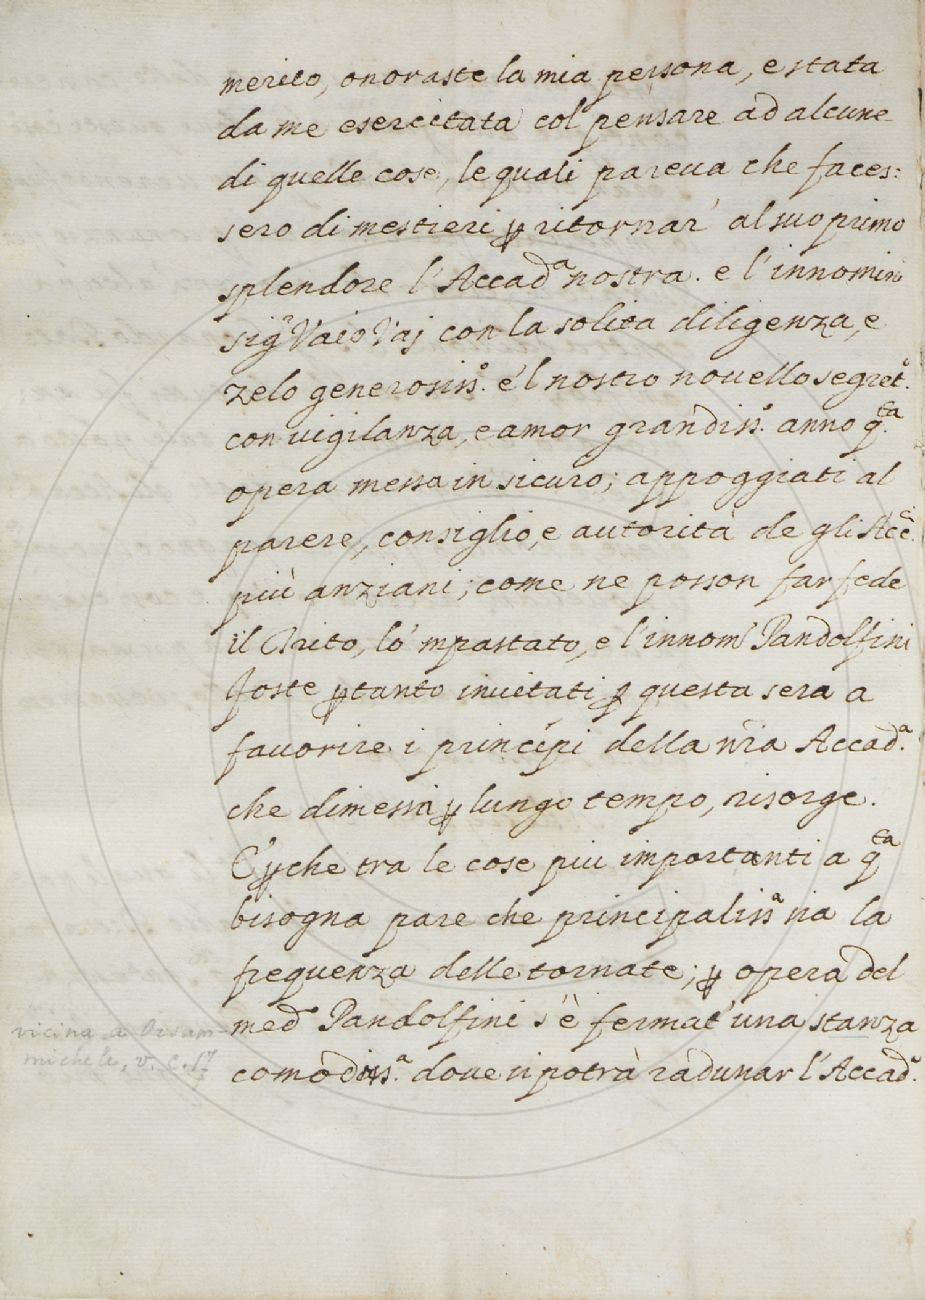 merito, onoraste la mia persona, e stata
da me esercitata col pensare ad alcune
di quelle cose, le quali pareua che faces:
sero di mestieri ꝑ ritornar' al suo primo
splendore l'Accad.ª nostra. e l'innomin
sig.ʳ Vaio Vaj con la solita diligenza, e
zelo generosiss.º e'l nostro nouello segret.º
con vigilanza, e amor grandiss.º anno q.ᵗᵃ
opera messa in sicuro; appoggiati al
parere, consiglio, e autorità de gli Acc.ⁱ
più anziani; come ne posson far fede
il Trito, lo 'mpastato, e l'innom. Pandolfini
foste ꝑtanto inuitati ꝑ questa sera a
fauorire i principi della nr̃a Accad.ª
che dimessi ꝑ lungo tempo, risorge.
E ꝑche tra le cose piu importanti a q.ᵗᵃ
bisogna pare che principaliss.ª sia la
frequenza delle tornate; ꝑ opera del
med.º Pandolfini s'è fermat' una stanza
comodiss.ª doue si potrà radunar l'Accad.ª
vicina a Orsam-
michele, v. c. 17